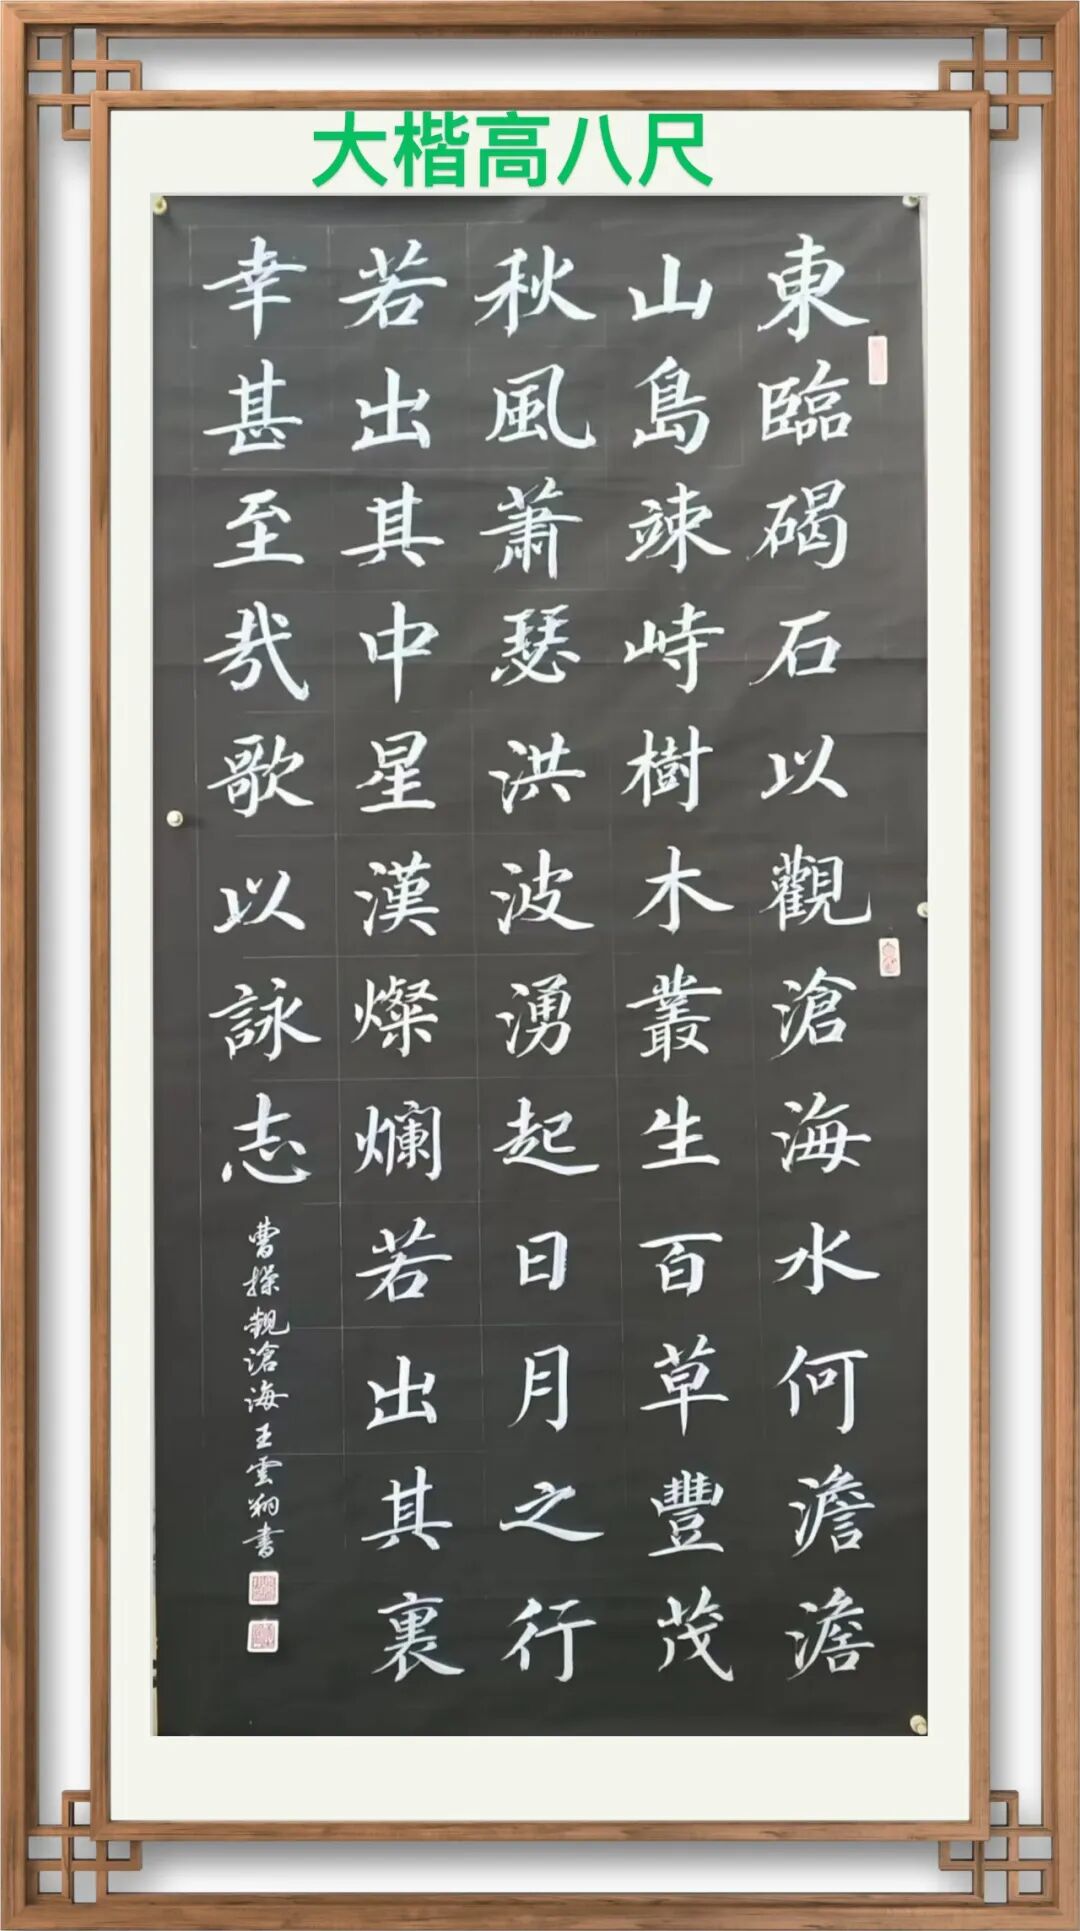 大楷高八尺
東臨碣石以觀滄海水何澹澹
山島竦峙樹木叢生百草豐茂
秋風蕭瑟洪波湧起日月之行
若出其中星漢燦爛若出其裏
幸甚至哉歌以詠志
曹操觀滄海王雲翔書